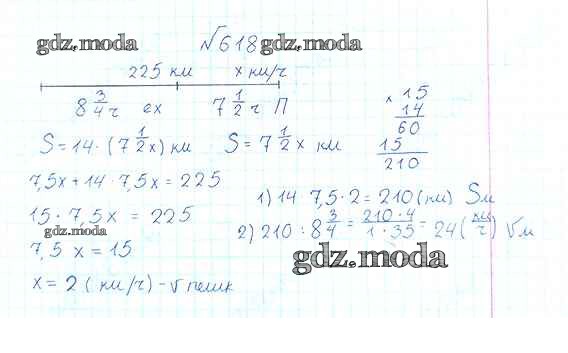 gdz.moda №618 gdz.moda
225 км х км/ч
8 3/4 ч ех 7 1/2 ч П
S = 14 · (7 1/2 х) км S = 7 1/2 х км
х 15
14
60
15
210
7,5х + 14 · 7,5х = 225
15 · 7,5х = 225
gdz.moda
7,5 х = 15
х = 2 (км/ч) - v пешк
1) 14 7,5 · 2 = 210 (км) Sм
2) 210 : 8 3/4 = 210 · 4 / 1 · 35 = 24 (км/ч) Vм
gdz.moda